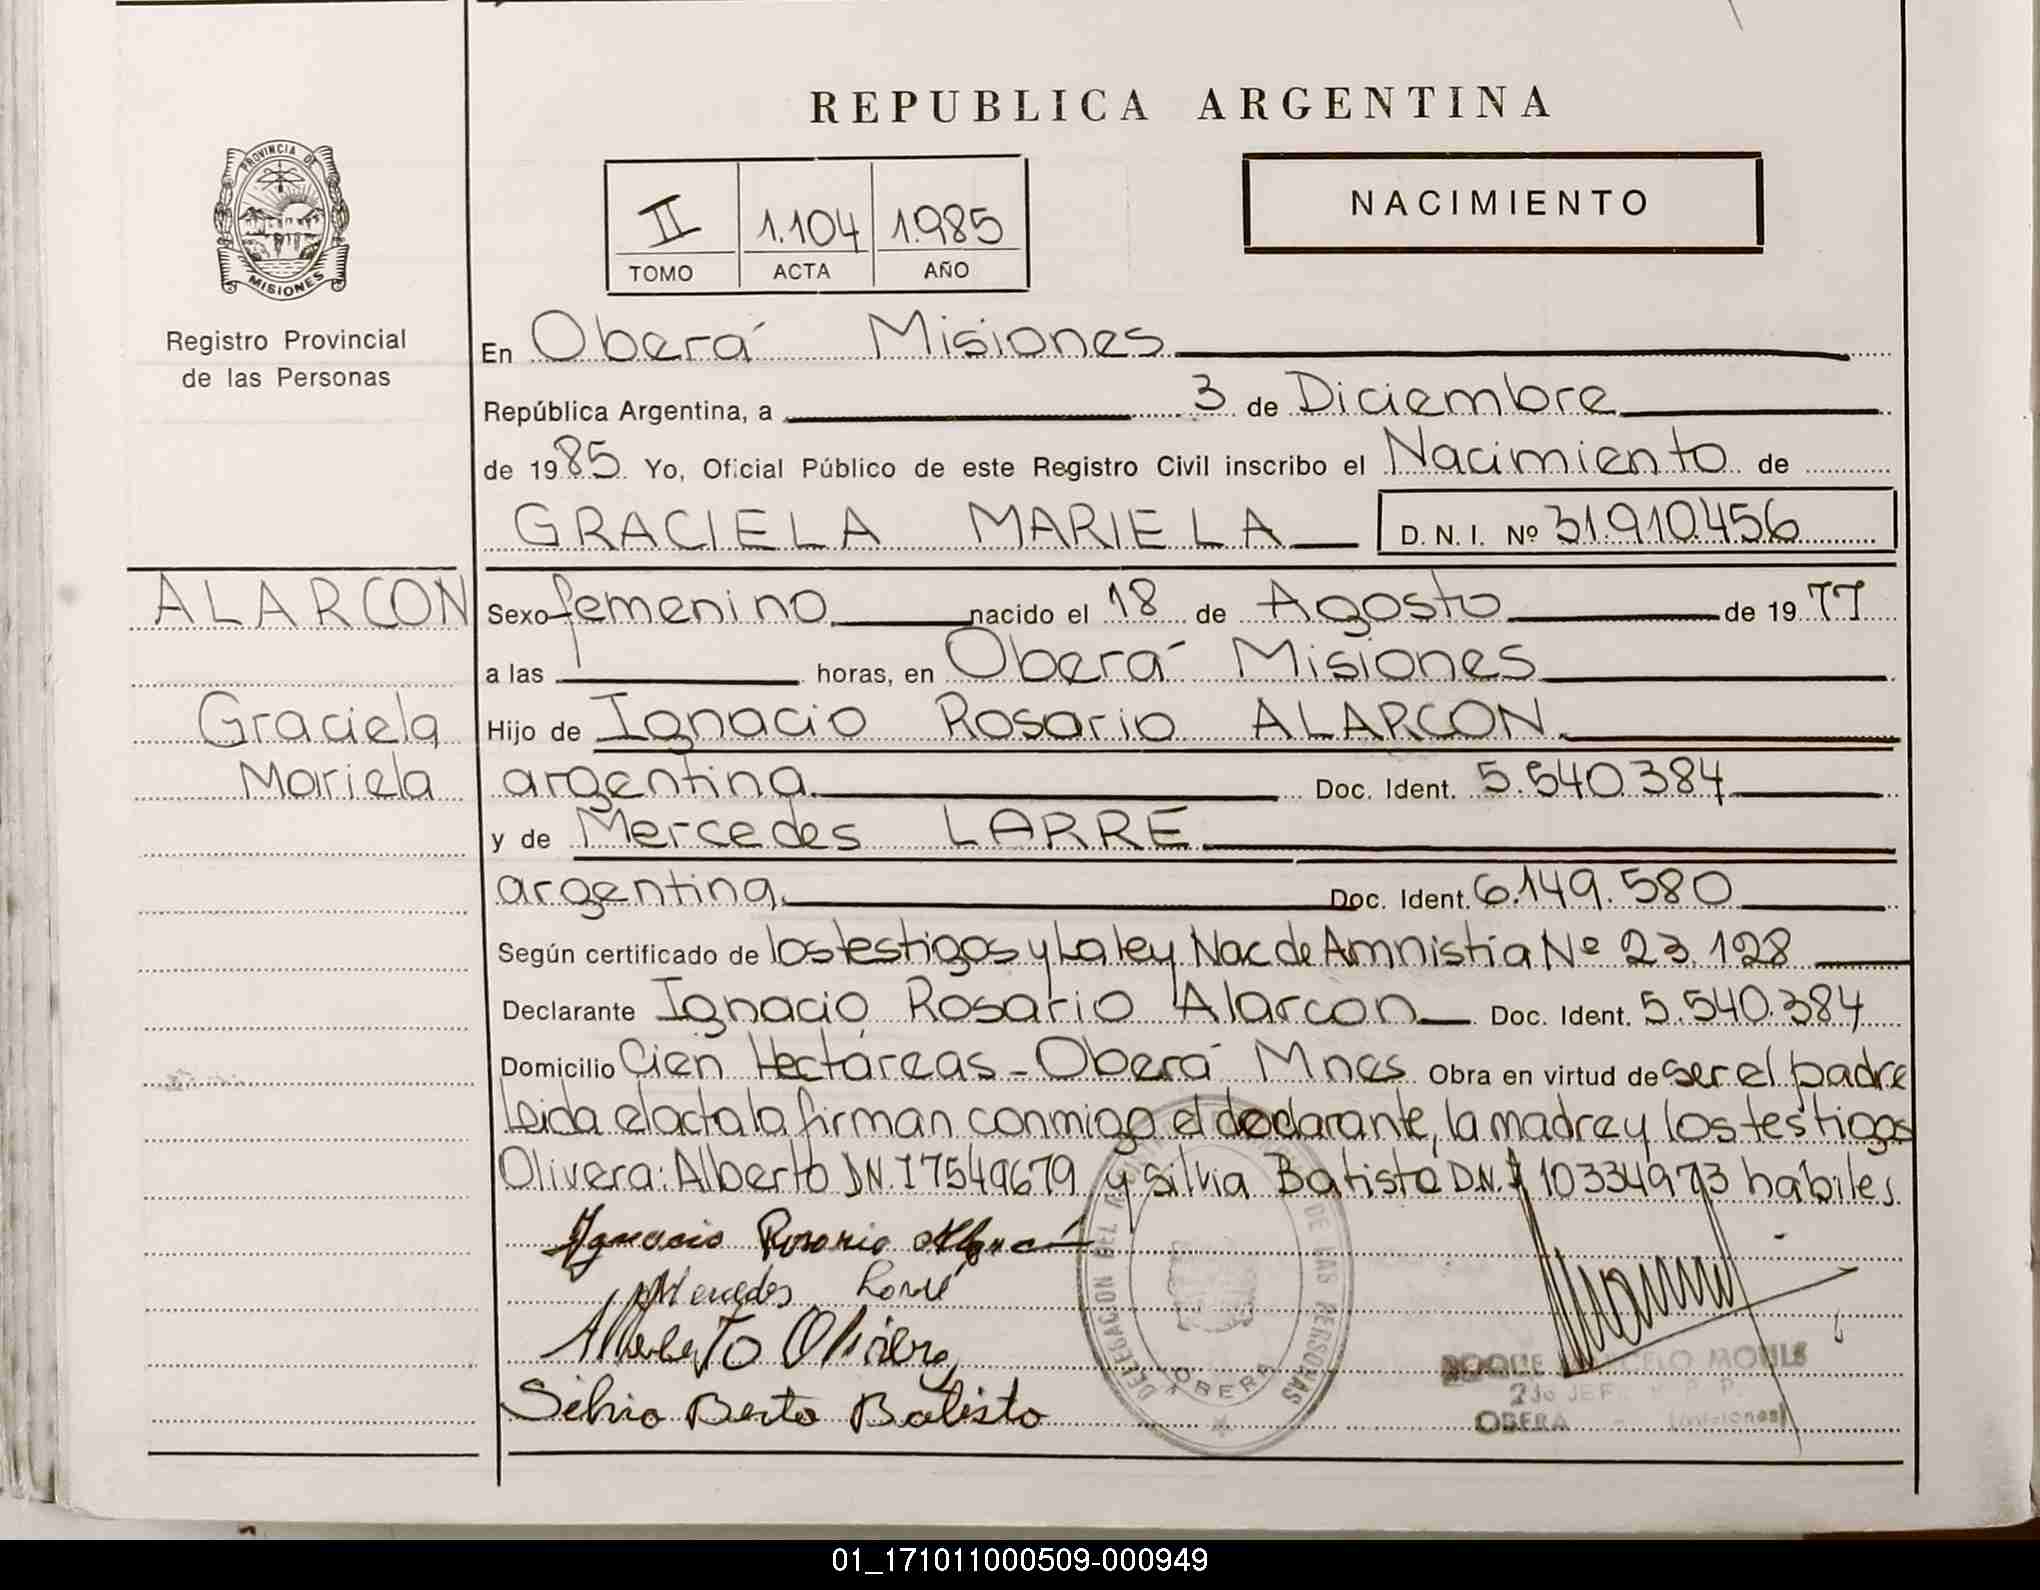 REPUBLICA ARGENTINA
PROVINCIA DE
MISIONES
Registro Provincial
de las Personas
II 1.104 1.985
TOMO ACTA AÑO
NACIMIENTO
En Oberá Misiones
República Argentina, a 3 de Diciembre
de 1985 Yo, Oficial Público de este Registro Civil inscribo el Nacimiento de
GRACIELA MARIELA D. N. I. Nº 31.910.456
ALARCON
Graciela
Mariela
Sexo femenino nacido el 18 de Agosto de 1977
a las horas, en Oberá Misiones
Hijo de Ignacio Rosario ALARCON.
argentina. Doc. Ident. 5.540.384
y de Mercedes LARRE
argentina. Doc. Ident. 6.149.580
Según certificado de los testigos y La ley Nac de Amnistía Nº 23.128
Declarante Ignacio Rosario Alarcon Doc. Ident. 5.540.384
Domicilio Cien Hectáreas - Oberá Mnes Obra en virtud de ser el padre
Leida el acta la firman conmigo el declarante, la madre y los testigos
Olivera: Alberto DN.I 7549679 y Silvia Batista D.N.I 10334973 habiles.
Ignacio Rosario
Mercedes Larré
Alberto Olivera
Silvia Berta Batista
DELEGACION 787
DE LAS PERSONAS
OBERA
ROQUE MARCELO
2do JEF
OBERA - (Misiones)
01_171011000509-000949